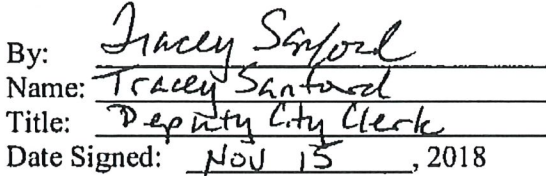 By: Tracey Sanford
Name: Tracey Sanford
Title: Deputy City Clerk
Date Signed: Nov 15, 2018